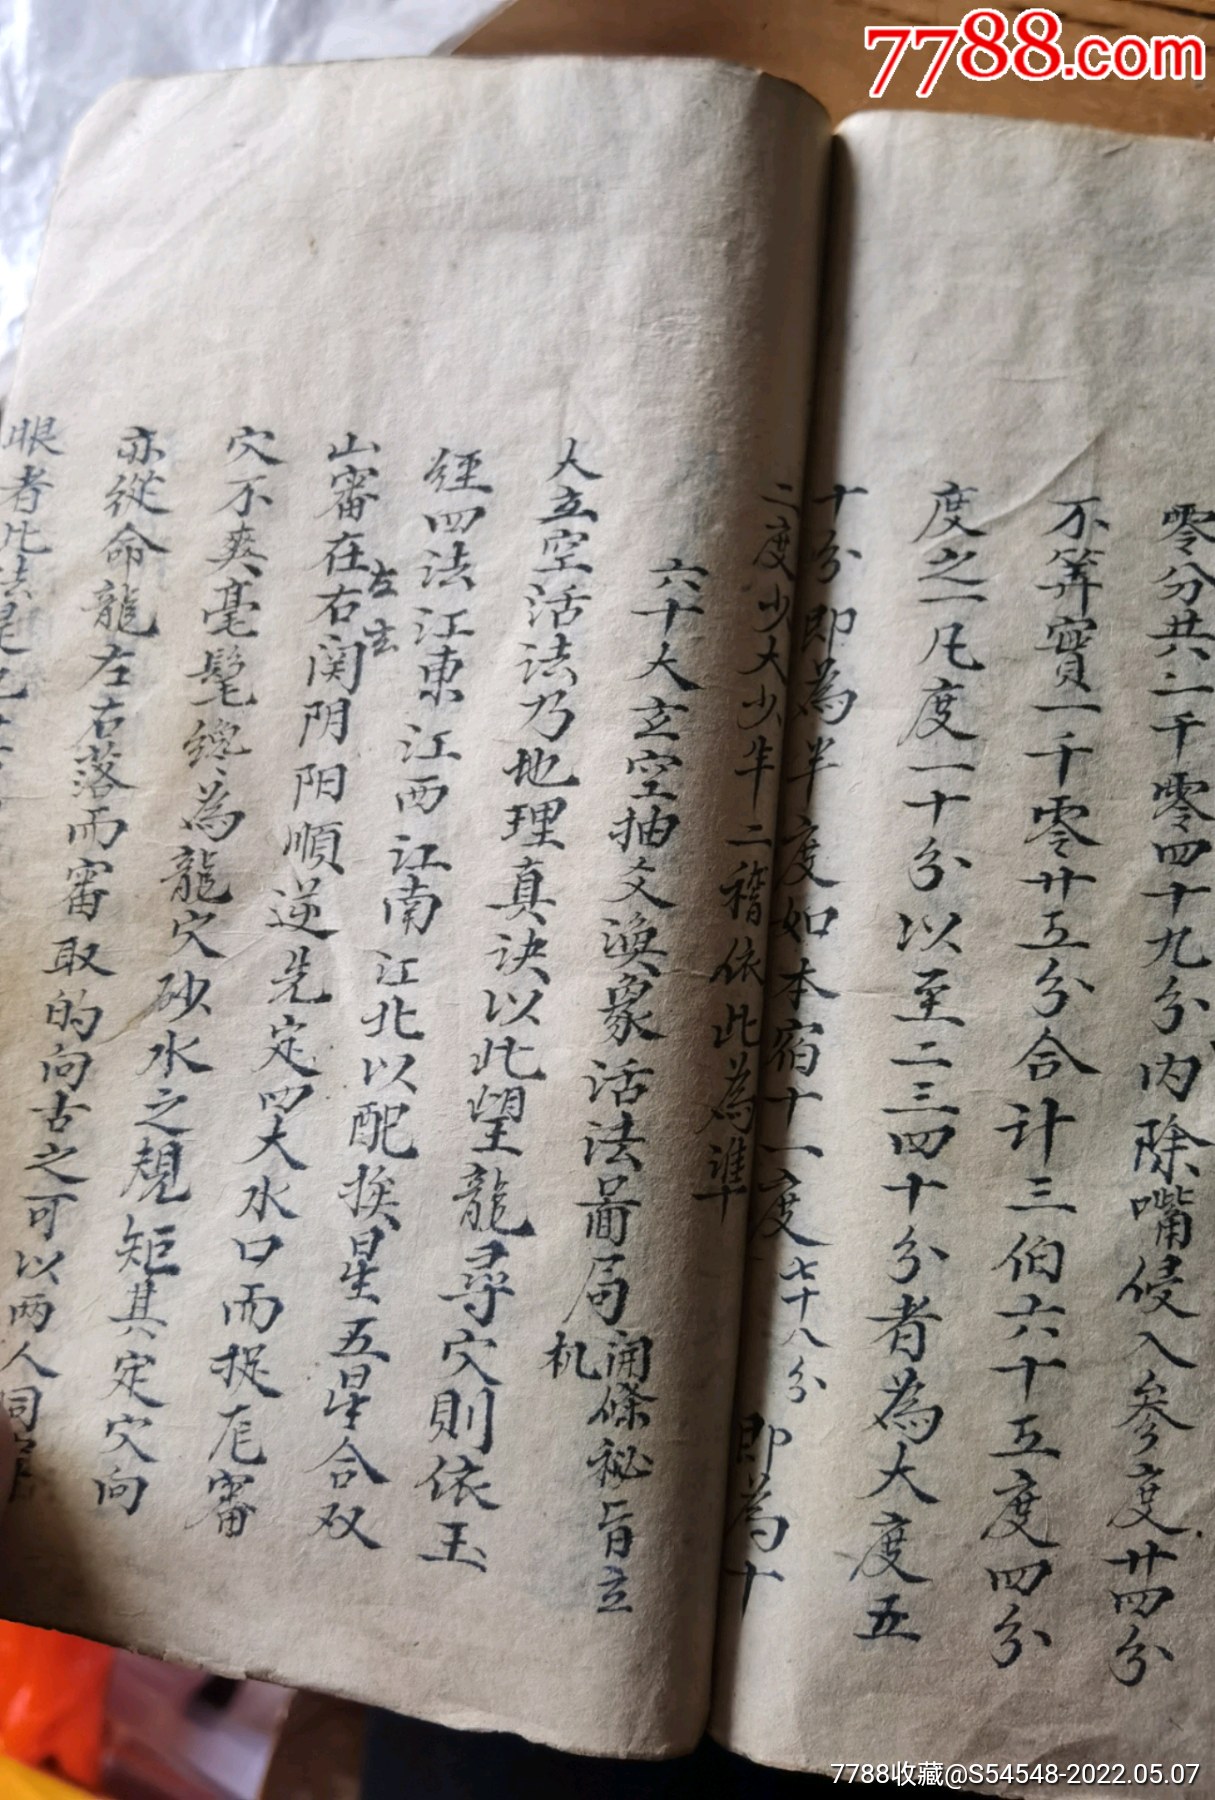 7788.com
零分共二千零四十九分内除嘴侵入参度廿四分
不筭實一千零廿五分合计三伯六十五度四分
度之一凡度一十分以至二三四十分者為大度五
十分即為半度如本宿十一度七十八分即為十
二度少大少半二稽依此為準
六十大玄空抽爻渙象活法啚局
開條秘旨立
机
人立空活法乃地理真诀以此望龍尋穴則依玉
經四法江東江西江南江北以配挨星五星合双
山審在右関阴阳順逆先定四大水口而捉庀審
左玄
穴不爽毫髦總為龍穴砂水之規矩其定穴向
亦從命龍左右落而審取的向古之可以两人同
眼者此法是也
7788收藏@S54548-2022.05.07